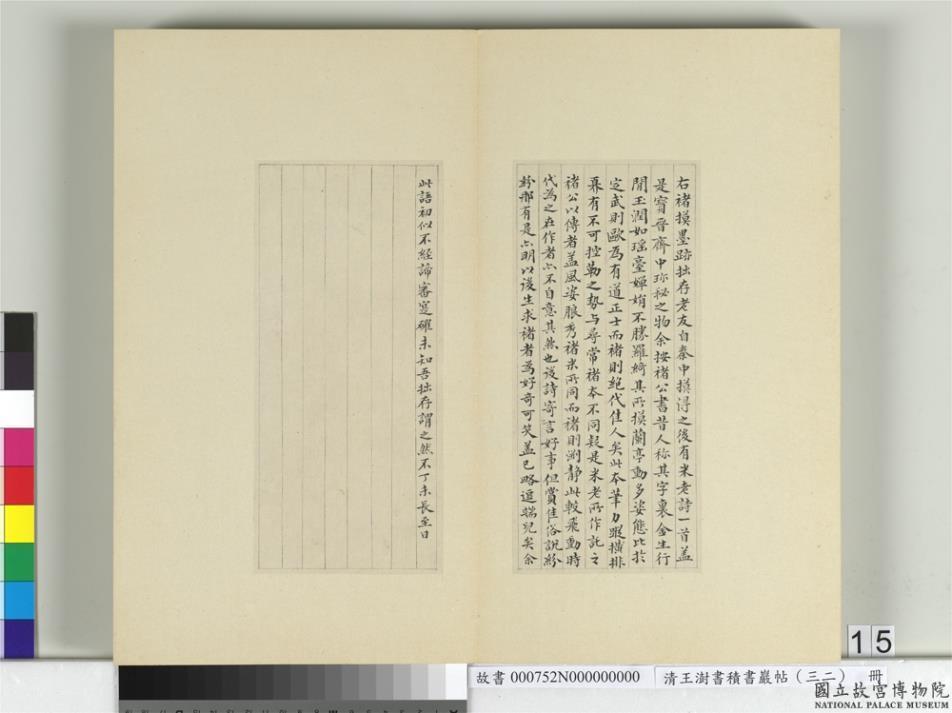 右褚摸墨跡拙存老友自秦中摸得之後有米老詩一首盖
是寶晉齋中珎秘之物余按褚公書昔人称其字裏金生行
間玉潤如瑶臺嬋娟不勝羅綺其所摸蘭亭動多姿態比於
定武則歐為有道正士而褚則絶代佳人矣此本筆力蹤横排
奡有不可控勒之势与尋常褚本不同疑是米老所作託之
褚公以傳者盖風姿朗秀褚米所同而褚則渊静此較飛動時
代為之在作者亦不自意其然也後詩寄言好事但賞佳俗説紛
紛那有是亦明以後生求褚者為好奇可笑盖已略逗端兒矣余
此語初似不經諦審寔確未知吾拙存謂之然不丁未長至日
15
故書 000752N000000000
清王澍書積書巖帖（三二） 冊
國立故宮博物院
NATIONAL PALACE MUSEUM